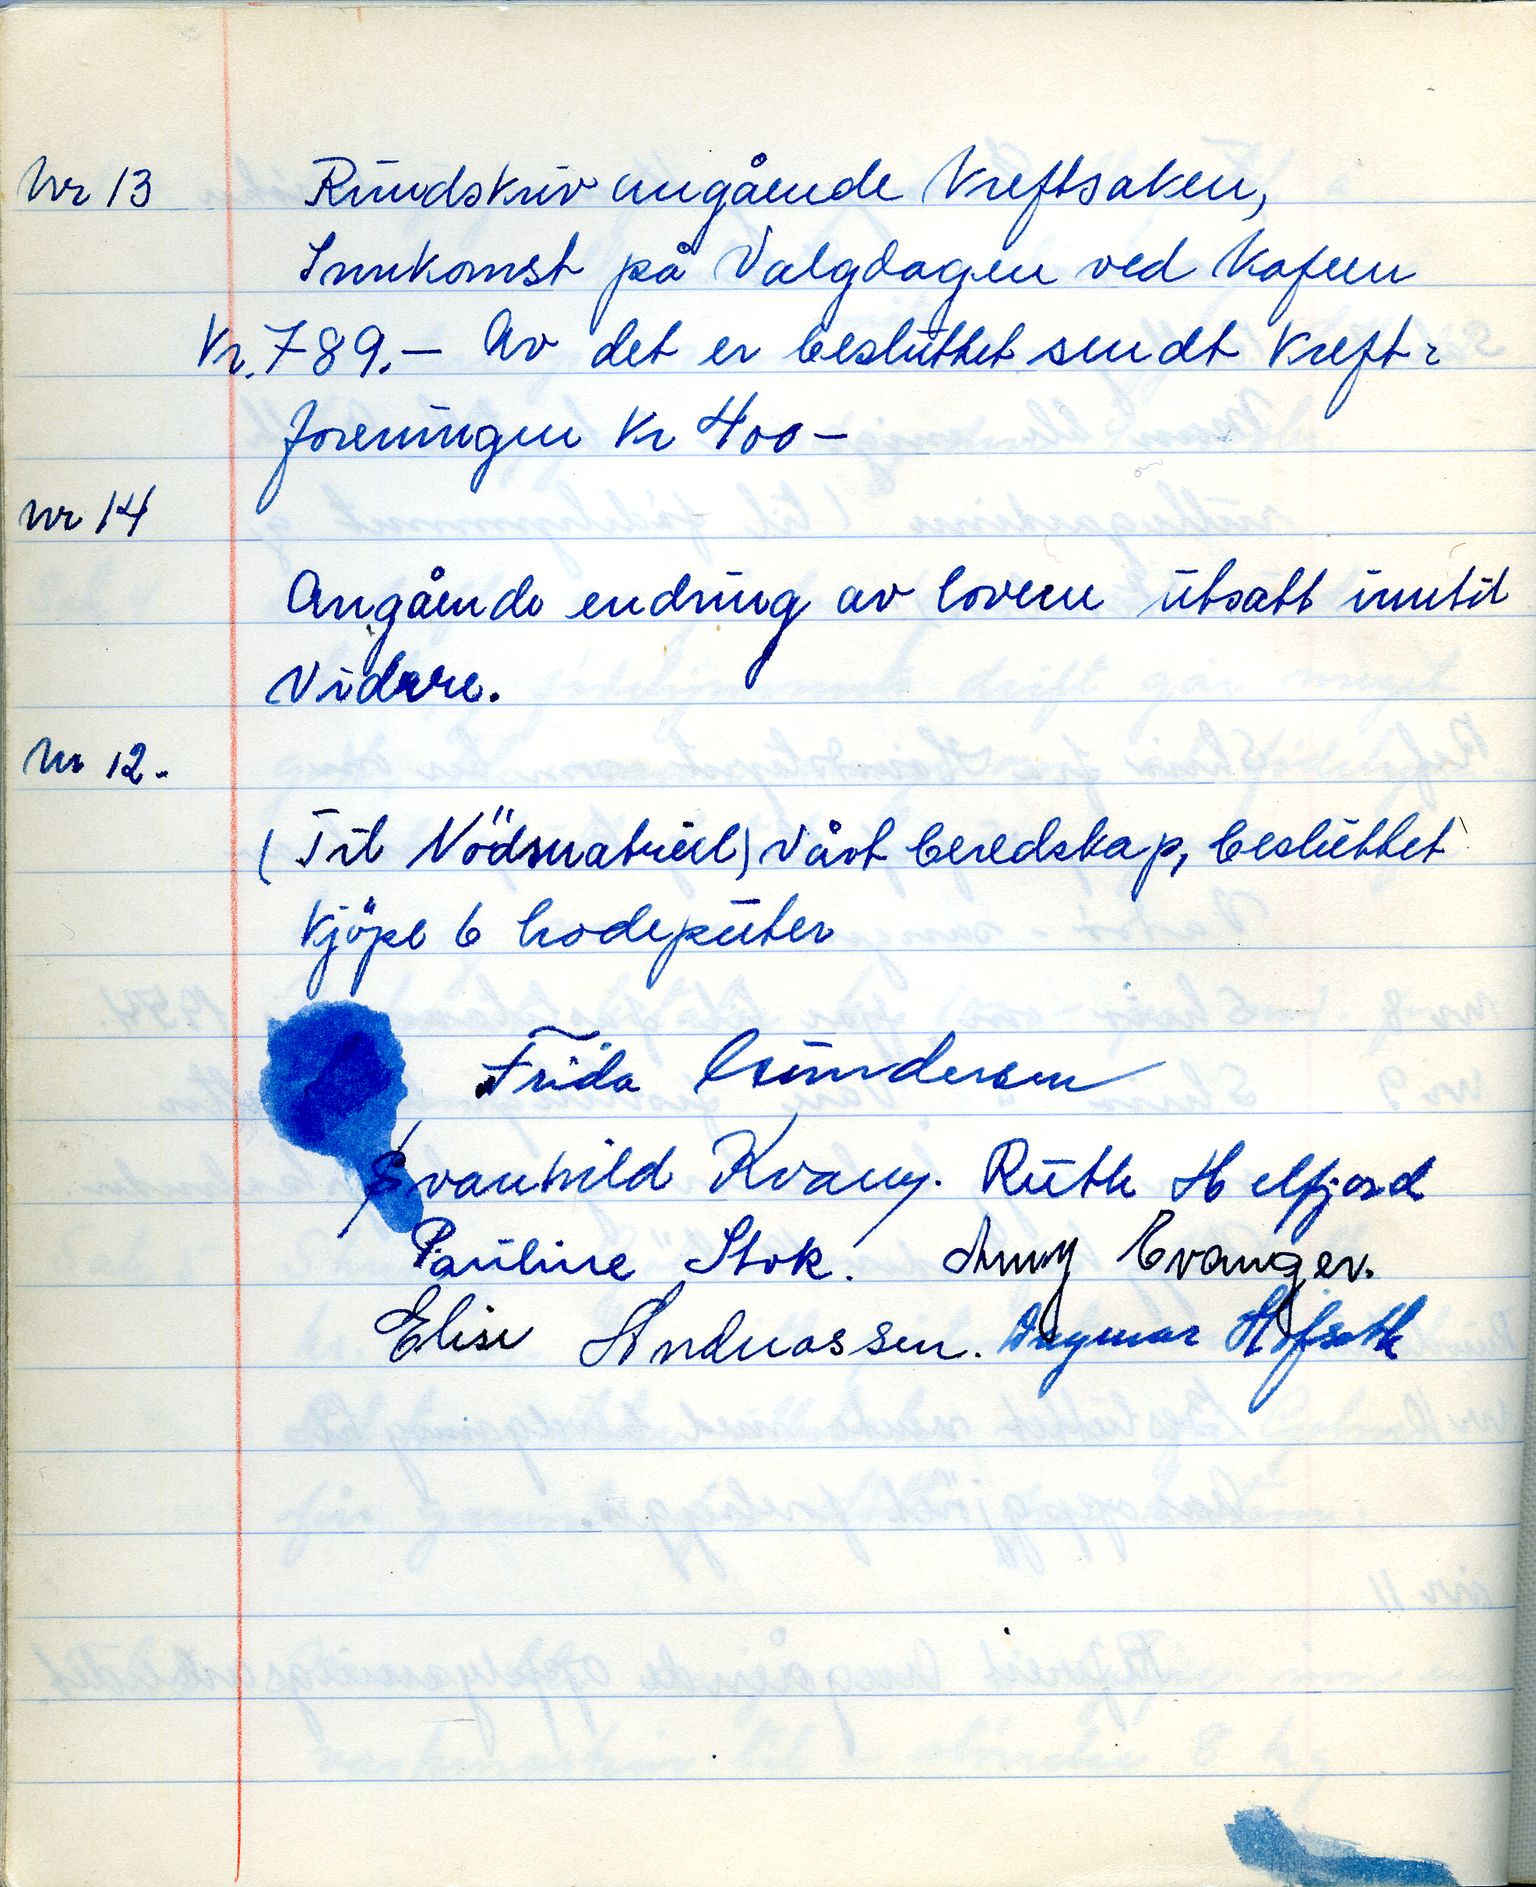 Nr 13 Rundskriv angående Kreftsaken,
Innkomst på Valgdagen ved Kafeen
Kr. 789.— Av det er besluttet sendt Kreft-
foreningen Kr 400—
Nr 14
Angående endring av lovene utsatt inntil
Videre.
Nr 12.
(Til Nödmatriell) Vårt beredskap, besluttet
Kjöpe 6 hodeputer
Frida Gundersen
Svanhild Kvang. Ruth Helfjord
Pauline Stok. Amy Evanger.
Elise Andreassen. Dagmar Hofseth